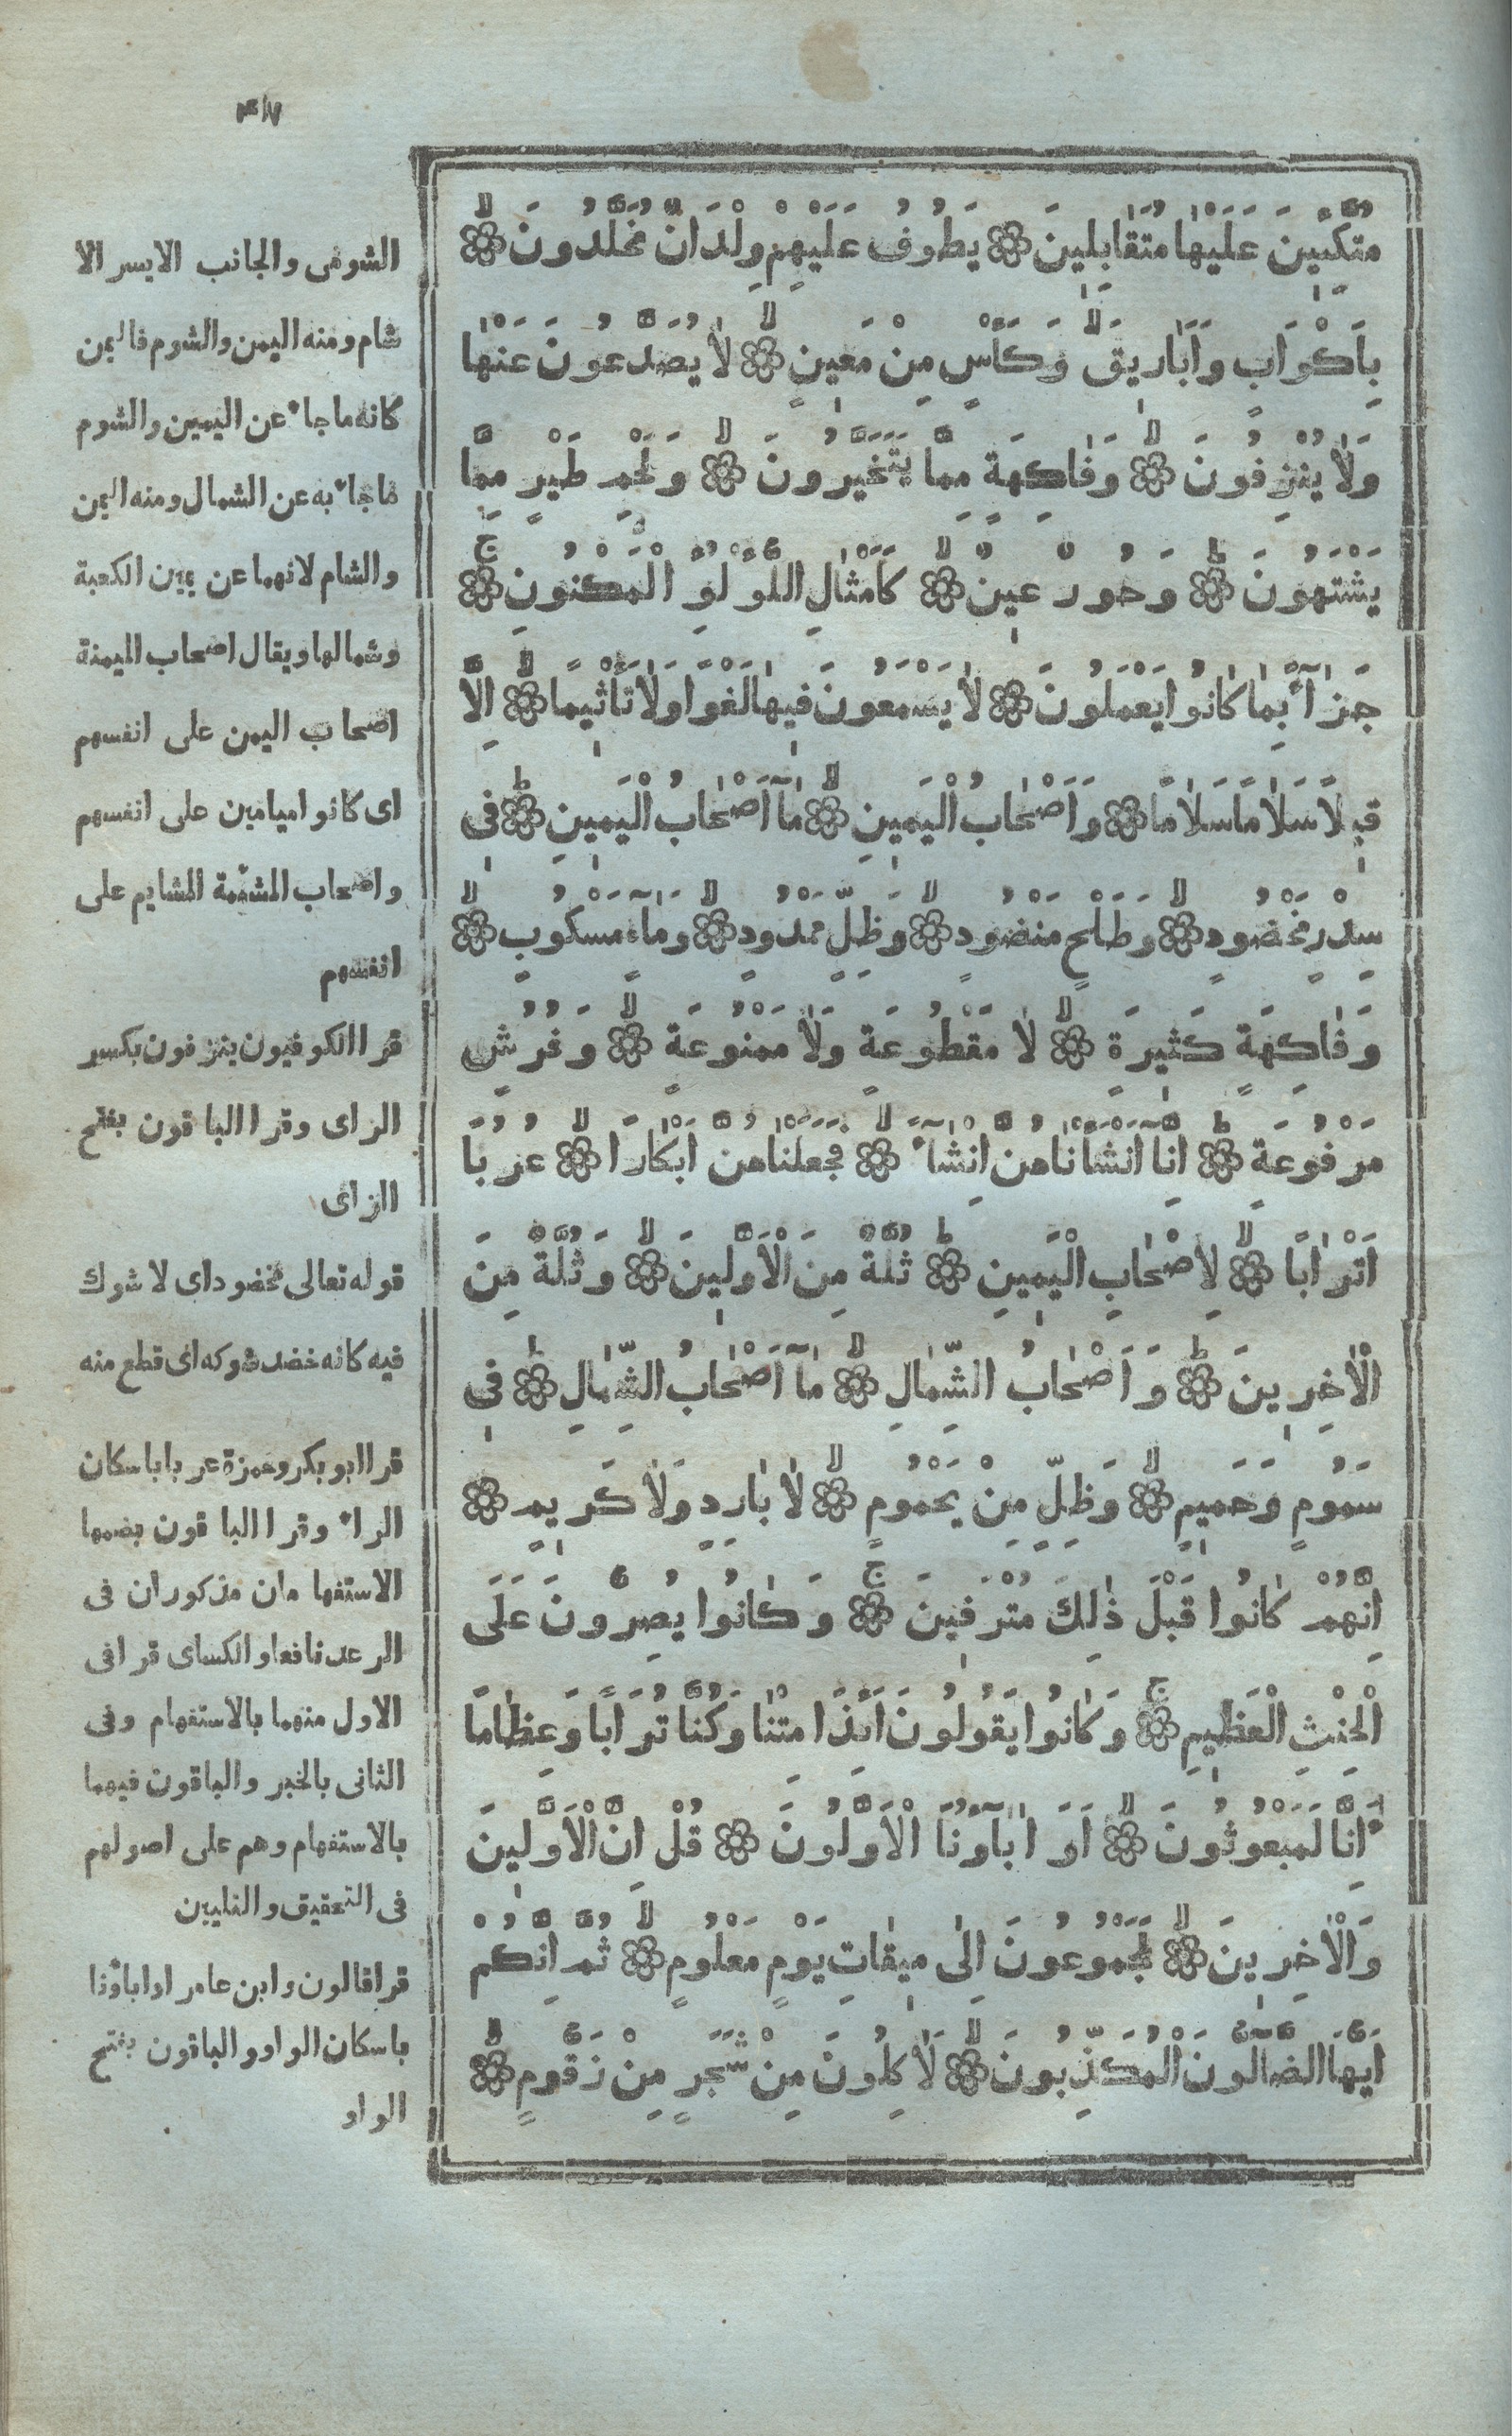 ٤١٧
مُتَّكِئِينَ عَلَيْهَا مُتَقَابِلِينَ ۞ يَطُوفُ عَلَيْهِمْ وِلْدَانٌ مُخَلَّدُونَ ۙ۞
بِاَكْوَابٍ وَاَبَارِيقَ ۙ وَكَاْسٍ مِنْ مَعِينٍ ۙ۞ لَا يُصَدَّعُونَ عَنْهَا
وَلَا يُنْزِفُونَ ۙ۞ وَفَاكِهَةٍ مِمَّا يَتَخَيَّرُونَ ۙ۞ وَلَحْمِ طَيْرٍ مِمَّا
يَشْتَهُونَ ۞ؕ وَحُورٌ عِينٌ ۙ۞ كَاَمْثَالِ اللُّؤْلُوءِ الْمَكْنُونِ ۞ۚ
جَزَآءً بِمَا كَانُوا يَعْمَلُونَ ۞ لَا يَسْمَعُونَ فِيهَا لَغْوًا وَلَا تَاْثِيمًا ۙ۞ اِلَّا
قِيلًا سَلَامًا سَلَامًا ۞ وَاَصْحَابُ الْيَمِينِ ۙ۞ مَآ اَصْحَابُ الْيَمِينِ ۞ؕ فِى
سِدْرٍ مَخْضُودٍ ۙ۞ وَطَلْحٍ مَنْضُودٍ ۙ۞ وَظِلٍّ مَمْدُودٍ ۙ۞ وَمَآءٍ مَسْكُوبٍ ۙ۞
وَفَاكِهَةٍ كَثِيرَةٍ ۙ۞ لَا مَقْطُوعَةٍ وَلَا مَمْنُوعَةٍ ۙ۞ وَفُرُشٍ
مَرْفُوعَةٍ ۞ؕ اِنَّآ اَنْشَاْنَاهُنَّ اِنْشَآءً ۙ۞ فَجَعَلْنَاهُنَّ اَبْكَارًا ۙ۞ عُرُبًا
اَتْرَابًا ۙ۞ لِاَصْحَابِ الْيَمِينِ ۞ؕ ثُلَّةٌ مِنَ الْاَوَّلِينَ ۙ۞ وَثُلَّةٌ مِنَ
الْاٰخِرِينَ ۞ؕ وَاَصْحَابُ الشِّمَالِ ۙ۞ مَآ اَصْحَابُ الشِّمَالِ ۞ؕ فِى
سَمُومٍ وَحَمِيمٍ ۙ۞ وَظِلٍّ مِنْ يَحْمُومٍ ۙ۞ لَا بَارِدٍ وَلَا كَرِيمٍ ۞
اِنَّهُمْ كَانُوا قَبْلَ ذٰلِكَ مُتْرَفِينَ ۞ۚ وَكَانُوا يُصِرُّونَ عَلَى
الْحِنْثِ الْعَظِيمِ ۞ۚ وَكَانُوا يَقُولُونَ اَئِذَا مِتْنَا وَكُنَّا تُرَابًا وَعِظَامًا
ءَاِنَّا لَمَبْعُوثُونَ ۙ۞ اَوَ اٰبَآؤُنَا الْاَوَّلُونَ ۞ قُلْ اِنَّ الْاَوَّلِينَ
وَالْاٰخِرِينَ ۙ۞ لَمَجْمُوعُونَ اِلٰى مِيقَاتِ يَوْمٍ مَعْلُومٍ ۙ۞ ثُمَّ اِنَّكُمْ
اَيُّهَا الضَّآلُّونَ الْمُكَذِّبُونَ ۙ۞ لَاٰكِلُونَ مِنْ شَجَرٍ مِنْ زَقُّومٍ ۙ۞
الشومى والجانب الايسر الا
شام ومنه اليمن والشوم فاليمن
كانه ما جاء عن اليمين والشوم
ماجاء به عن الشمال ومنه اليمن
والشام لانهما عن يمين الكعبة
وشمالها ويقال اصحاب الميمنة
اصحاب اليمن على انفسهم
اى كانوا ميامين على انفسهم
واصحاب المشئمة المشايم على
انفسهم
قرا الكوفيون ينزفون بكسر
الزاى وقرا الباقون بفتح
الزاى
قوله تعالى مخضود اى لا شوك
فيه كانه خضد شوكه اى قطع منه
قرا ابو بكر وحمزة عربا باسكان
الراء وقرا الباقون بضمها
الاستفها مان مذكوران فى
الرعد نافعا والكساى قرا فى
الاول منهما بالاستفهام وفى
الثانى بالخبر والباقون فيهما
بالاستفهام وهم على اصولهم
فى التحقيق والتليين
قرا قالون وابن عامر اواباؤنا
باسكان الواو والباقون بفتح
الواو